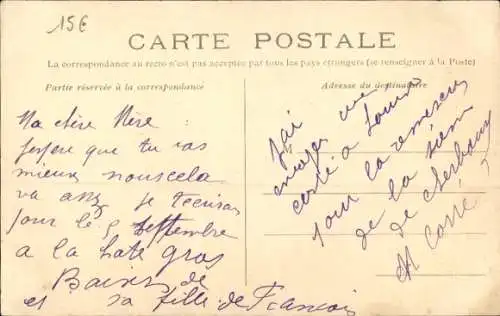 15€
CARTE POSTALE
La correspondance au recto n'est pas acceptée par tous les pays étrangers (se renseigner à la Poste)
Partie réservée à la correspondance
Adresse du destinataire
Ma chère Mère :
J'espère que tu vas
mieux nous cela
va assez je t'ecrirai
pour le 5 septembre
a la hate gros
Baisers de
et sa fille de Francois
J'ai
envoyer une
carte a Louis
pour la remercier
de la sienne
de cherbourg